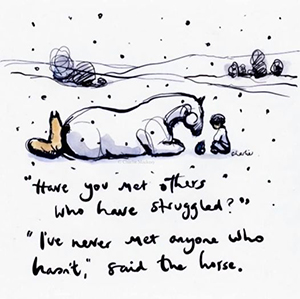 Charlie
"Have you met others
who have struggled?"
"I've never met anyone who
hasn't," said the horse.